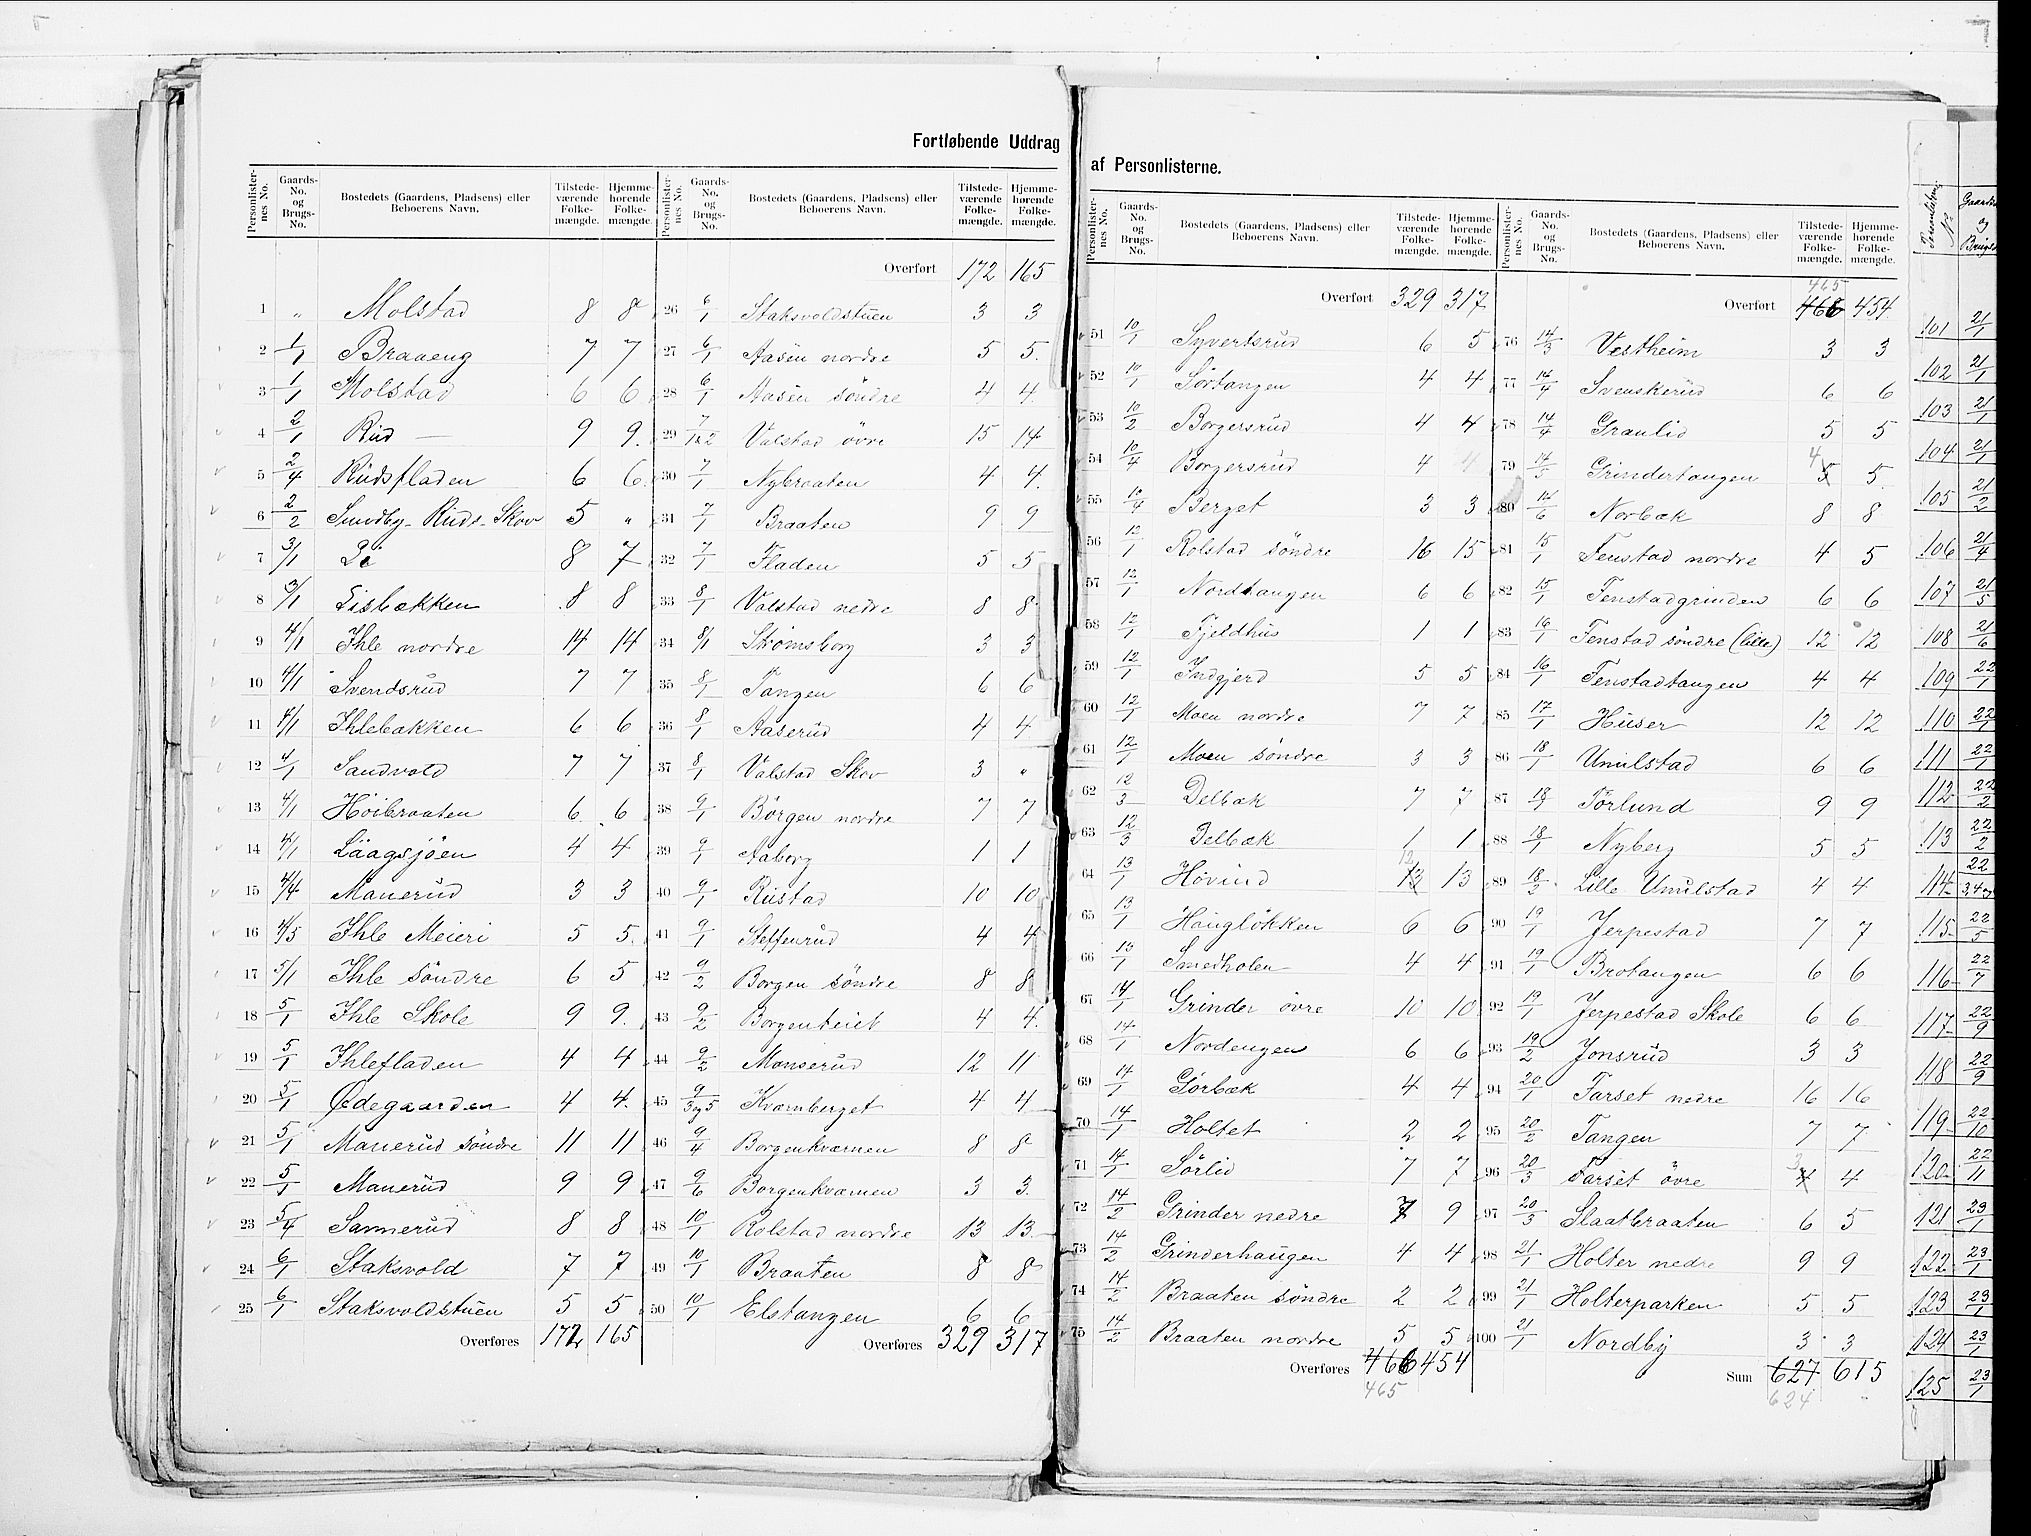 Fortløbende Uddrag
Personlister-nes No. Gaards-No. og Brugs-No. Bostedets (Gaardens, Pladsens) eller Beboerens Navn. Tilstede-værende Folke-mængde. Hjemme-hørende Folke-mængde.
1 " Molstad 8 8
2 1/1 Braaeng 7 7
3 1/1 Molstad 6 6
4 2/1 Rud — 9 9
5 2/4 Rudsfladen 6 6
6 2/2 Sundby-Ruds-Skov 5 "
7 3/1 Li 8 7
8 3/1 Lisbækken 8 8
9 4/1 Ihle nordre 14 14
10 4/1 Svendsrud 7 7
11 4/1 Ihlebakken 6 6
12 4/1 Sandvold 7 7
13 4/1 Höibraaten 6 6
14 4/1 Laagsjöen 4 4
15 4/4 Manerud 3 3
16 4/5 Ihle Meieri 5 5
17 5/1 Ihle söndre 6 5
18 5/1 Ihle Skole 9 9
19 5/1 Ihlefladen 4 4
20 5/1 Ødegaarden 4 4
21 5/1 Manerud söndre 11 11
22 5/1 Manerud 9 9
23 5/4 Sannerud 8 8
24 6/1 Staksvold 7 7
25 6/1 Staksvoldstuen 5 5
Overføres 172 165
Personlister-nes No. Gaards-No. og Brugs-No. Bostedets (Gaardens, Pladsens) eller Beboerens Navn. Tilstede-værende Folke-mængde. Hjemme-hørende Folke-mængde.
Overført 172 165
26 6/1 Staksvoldstuen 3 3
27 6/1 Aasen nordre 5 5
28 6/1 Aasen söndre 4 4
29 7/1&2 Valstad övre 15 14
30 7/1 Nybraaten 4 4
31 7/1 Braaten 9 9
32 7/1 Fladen 5 5
33 8/1 Valstad nedre 8 8
34 8/1 Strömsborg 3 3
35 8/1 Tangen 6 6
36 8/1 Aaserud 4 4
37 8/1 Valstad Skov 3 "
38 9/1 Börgen nordre 7 7
39 9/1 Aaborg 1 1
40 9/1 Rustad 10 10
41 9/1 Steffenrud 4 4
42 9/2 Borgen söndre 8 8
43 9/2 Borgenteiet 4 4
44 9/2 Monserud 12 11
45 9/3og5 Kværnberget 4 4
46 9/4 Borgenkværnen 8 8
47 9/6 Borgenkværnen 3 3
48 10/1 Rolstad nordre 13 13
49 10/1 Braaten 8 8
50 10/1 Elstangen 6 6
Overføres 329 317
af Personlisterne.
Personlister-nes No. Gaards-No. og Brugs-No. Bostedets (Gaardens, Pladsens) eller Beboerens Navn. Tilstede-værende Folke-mængde. Hjemme-hørende Folke-mængde.
Overført 329 317
51 10/1 Syvertsrud 6 5
52 10/1 Sörtangen 4 4
53 10/2 Borgersrud 4 4
54 10/4 Borgersrud 4 4
55 10/4 Berget 3 3
56 12/1 Rolstad söndre 16 15
57 12/1 Nordtangen 6 6
58 12/1 Fjeldhus 1 1
59 12/1 Indgjerd 5 5
60 12/1 Moen nordre 7 7
61 12/1 Moen söndre 3 3
62 12/3 Delbæk 7 7
63 12/3 Delbæk 1 1
64 13/1 Hovind 12 13 13
65 13/1 Haugløkken 6 6
66 13/1 Smedholen 4 4
67 14/1 Grinder övre 10 10
68 14/1 Nordengen 6 6
69 14/1 Görbæk 4 4
70 14/1 Holtet 2 2
71 14/1 Sörlid 7 7
72 14/2 Grinder nedre 7 9
73 14/2 Grinderhaugen 4 4
74 14/2 Braaten söndre 2 2
75 14/2 Braaten nordre 5 5
Overføres 466 454
465
Personlister-nes No. Gaards-No. og Brugs-No. Bostedets (Gaardens, Pladsens) eller Beboerens Navn. Tilstede-værende Folke-mængde. Hjemme-hørende Folke-mængde.
465
Overført 466 454
76 14/3 Vestheim 3 3
77 14/4 Svenskerud 6 6
78 14/4 Granlid 5 5
79 14/5 Grindertangen 4 5 5
80 14/6 Norbæk 8 8
81 15/1 Fenstad nordre 4 5
82 15/1 Fenstadgrinden 6 6
83 16/1 Fenstad söndre (lille) 12 12
84 16/1 Fenstadtangen 4 4
85 17/1 Huser 12 12
86 18/1 Unulstad 6 6
87 18/1 Törlund 9 9
88 18/1 Nyberg 5 5
89 18/3 Lille Unulstad 4 4
90 19/1 Jerpestad 7 7
91 19/1 Brotangen 6 6
92 19/1 Jerpestad Skole 6 6
93 19/2 Jonsrud 3 3
94 20/1 Farset nedre 16 16
95 20/2 Tangen 7 7
96 20/3 Farset övre 3 4 4
97 20/3 Slaatbraaten 6 5
98 21/1 Holter nedre 9 9
99 21/1 Holterparken 5 5
100 21/1 Nordby 3 3
Sum 627 615
624
Personlisternes No Gaards og Brugs
101 21/1
102 21/1
103 21/1
104 21/1
105 21/2
106 21/4
107 21/5
108 21/6
109 22/1
110 22/1
111 22/1
112 22/2
113 22/2
114 22/3,4og
115 22/5
116 22/7
117 22/9
118 22/9
119 22/10
120 22/11
121 23/1
122 23/1
123 23/1
124 23/1
125 23/1